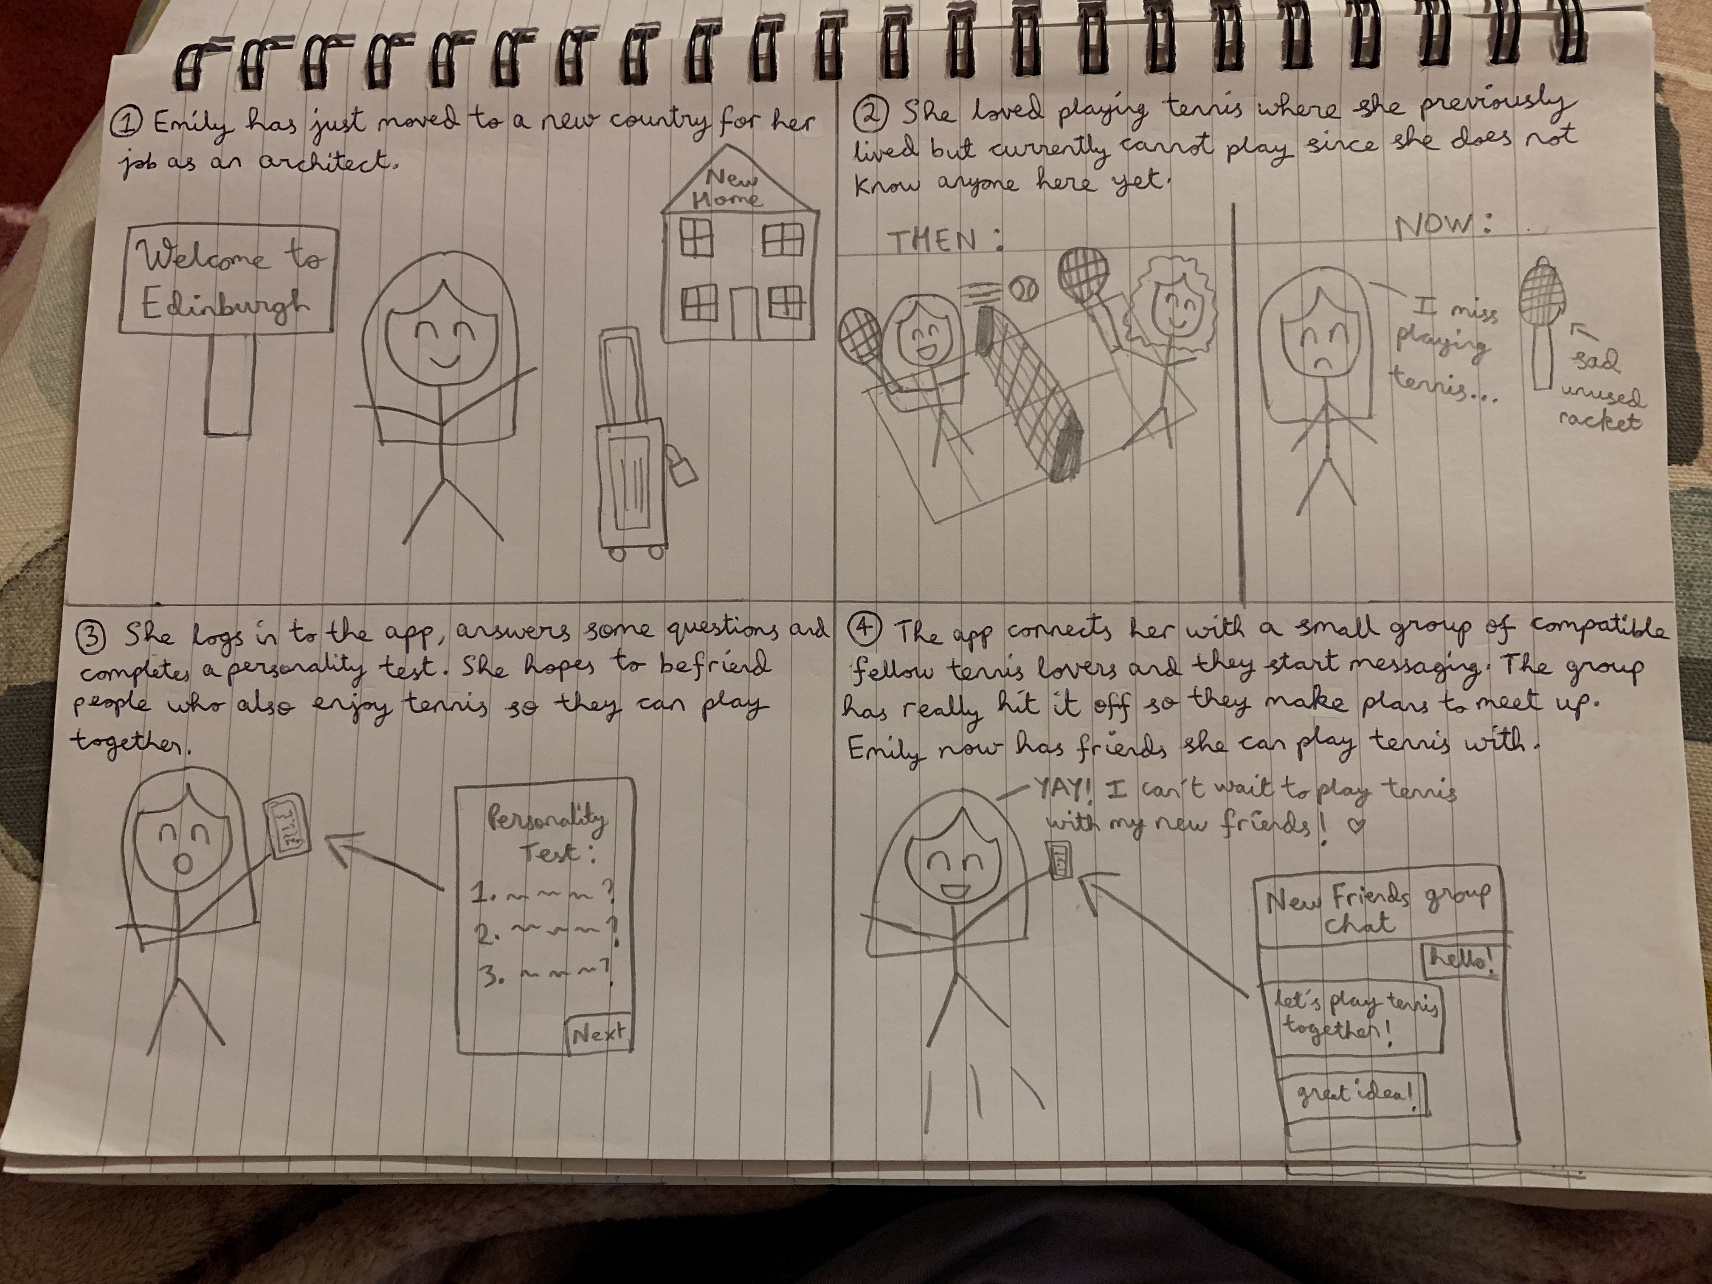 ① Emily has just moved to a new country for her
job as an architect.
New
Home
Welcome to
Edinburgh
② She loved playing tennis where she previously
lived but currently cannot play since she does not
know anyone here yet.
THEN:
NOW:
I miss
playing
tennis...
sad
unused
racket
③ She logs in to the app, answers some questions and
completes a personality test. She hopes to befriend
people who also enjoy tennis so they can play
together.
Personality
Test:
1. ~ ~ ~ ~?
2. ~ ~ ~ ~?
3. ~ ~ ~ ~?
Next
④ The app connects her with a small group of compatible
fellow tennis lovers and they start messaging. The group
has really hit it off so they make plans to meet up.
Emily now has friends she can play tennis with.
YAY! I can't wait to play tennis
with my new friends! ♡
New Friends group
chat
hello!
let's play tennis
together!
great idea!